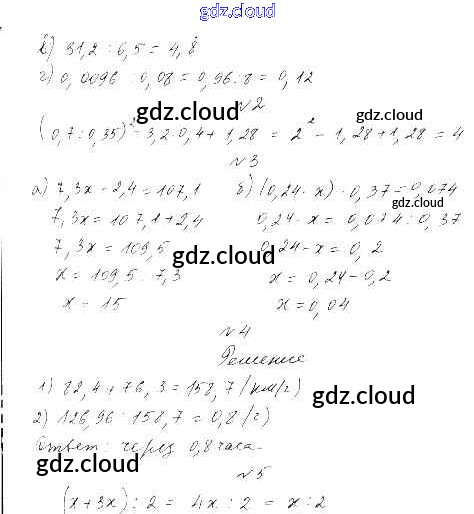 gdz.cloud
в) 31,2 : 6,5 = 4,8
г) 0,0096 : 0,08 = 0,96 : 8 = 0,12
gdz.cloud
№2
gdz.cloud
(0,7 : 0,35)² - 3,2 · 0,4 + 1,28 = 2² - 1,28 + 1,28 = 4
№3
gdz.cloud
а) 7,3x - 2,4 = 107,1 б) (0,24 - x) · 0,37 = 0,074
gdz.cloud
7,3x = 107,1 + 2,4 0,24 - x = 0,074 : 0,37
7,3x = 109,5 0,24 - x = 0,2
gdz.cloud
x = 109,5 : 7,3 x = 0,24 - 0,2
x = 15 x = 0,04
№4
Решение
1) 82,4 + 76,3 = 158,7 (км/ч)
gdz.cloud
2) 126,96 : 158,7 = 0,8 (ч)
Ответ: через 0,8 часа.
gdz.cloud
№5
(x + 3x) : 2 = 4x : 2 = x : 2
gdz.cloud